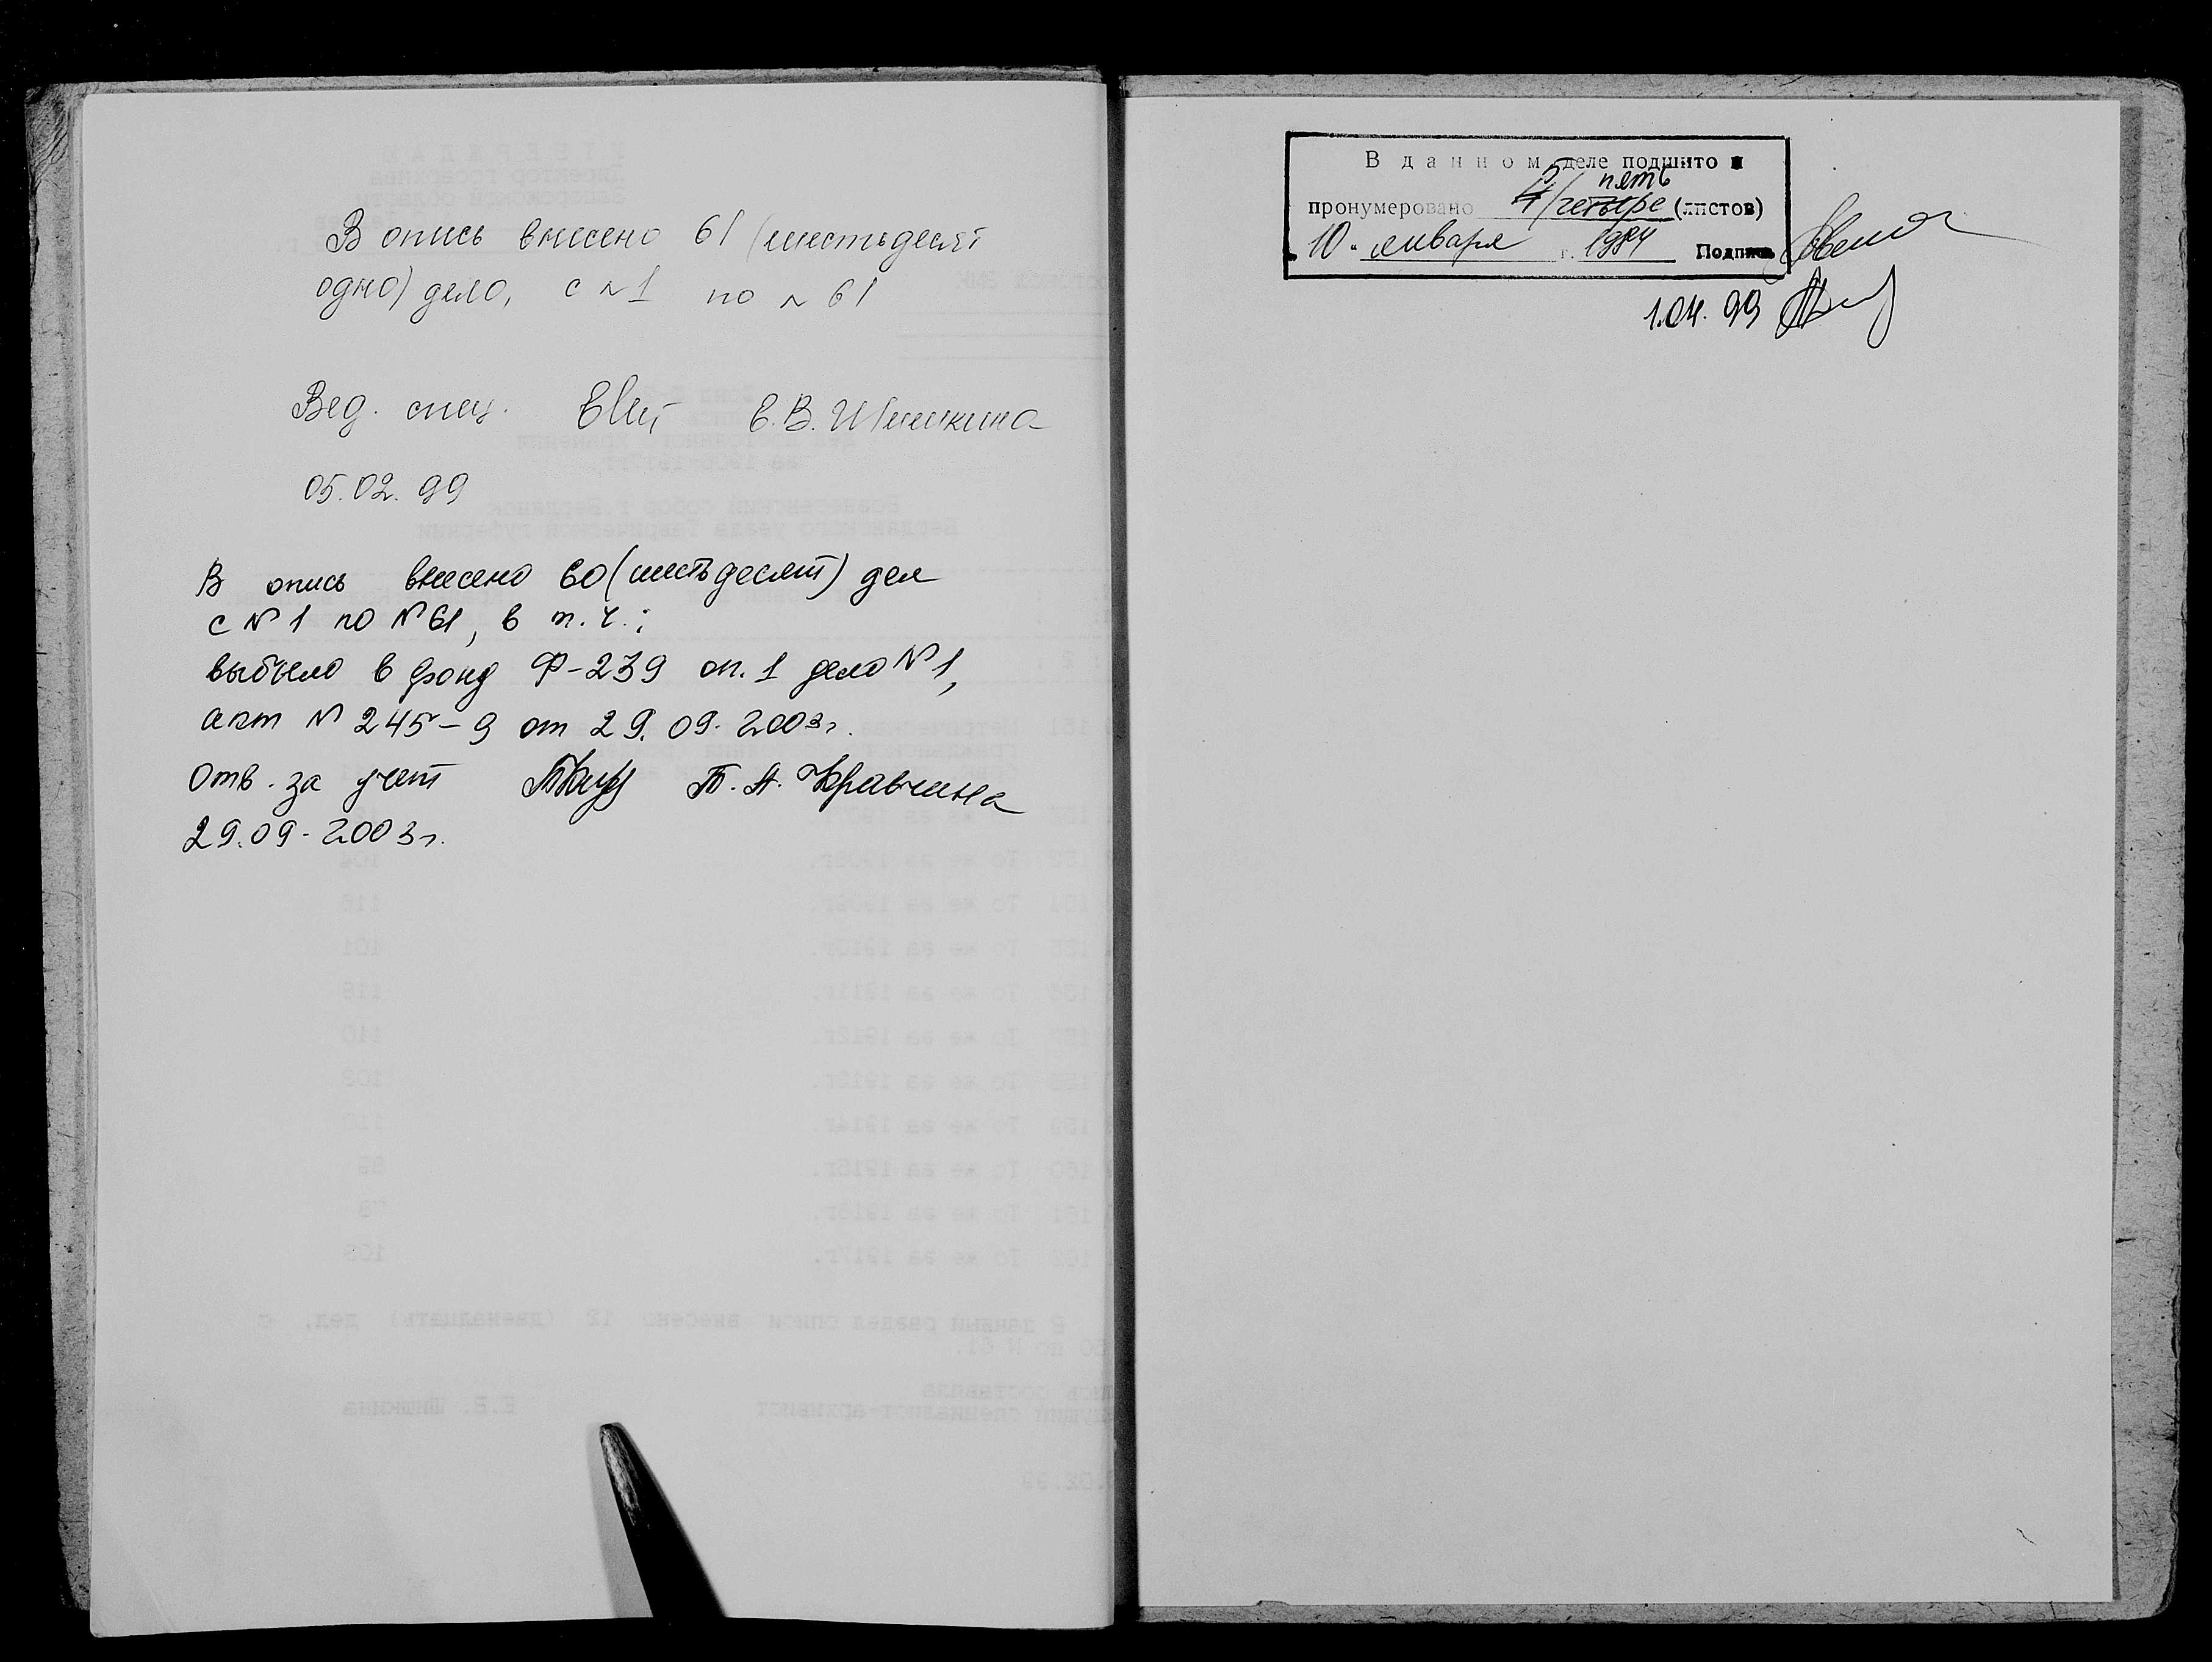 В опись внесено 61 (шестьдесят
одно) дело, с №1 по №61
Вед. спец. Е.В. Шишкина
05.02.99
В опись внесено 60 (шестьдесят) дел
с №1 по №61, в т.ч.:
выбыло в фонд Ф-239 оп. 1 дело №1,
акт №245-9 от 29.09.2003г.
Отв. за учет Т.А. Кравчина
29.09.2003г.
В данном деле подшито и
5 пять
пронумеровано 4/четыре (листов)
10 " января г. 1984 Подпись
1.04.99